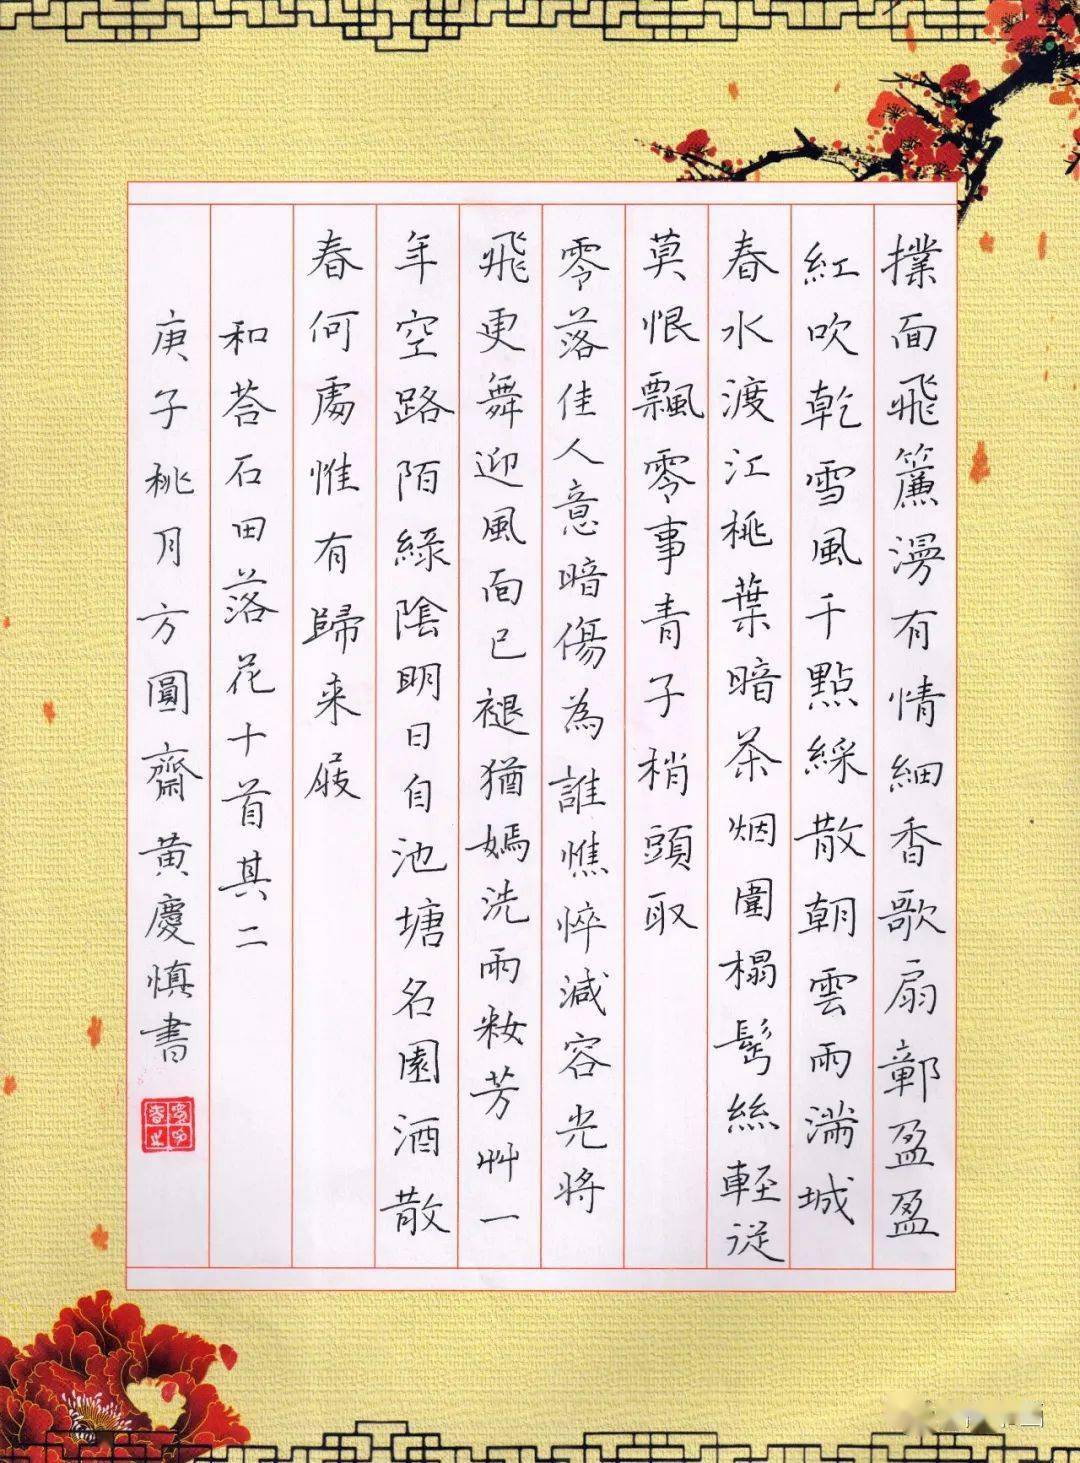 撲面飛簾漫有情細香歌扇鄣盈盈
紅吹乾雪風千點綵散朝雲雨滿城
春水渡江桃葉暗茶烟圍榻髩絲輕從
莫恨飄零事青子梢頭取
零落佳人意暗傷為誰憔悴減容光將
飛更舞迎風面已褪猶嫣洗雨粧芳艸一
年空路陌綠陰明日自池塘名園酒散
春何處惟有歸来屐
和荅石田落花十首其二
庚子桃月方圓齋黃慶慎書